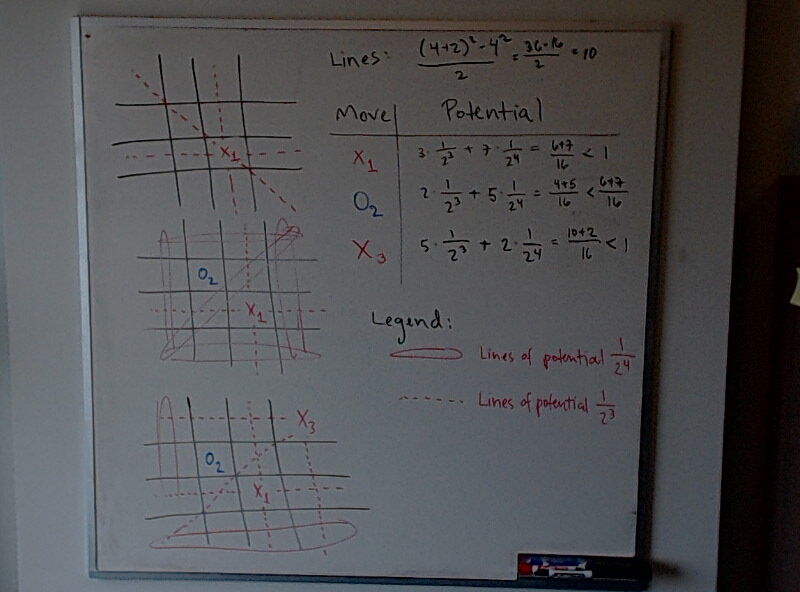 Lines: (4+2)² - 4² / 2 = 36-16 / 2 = 10
Move Potential
X₁ 3 · 1/2³ + 7 · 1/2⁴ = 6+7/16 < 1
O₂ 2 · 1/2³ + 5 · 1/2⁴ = 4+5/16 < 6+7/16
X₃ 5 · 1/2³ + 2 · 1/2⁴ = 10+2/16 < 1
X₁
O₂
X₁
Legend:
Lines of potential 1/2⁴
Lines of potential 1/2³
X₃
O₂
X₁